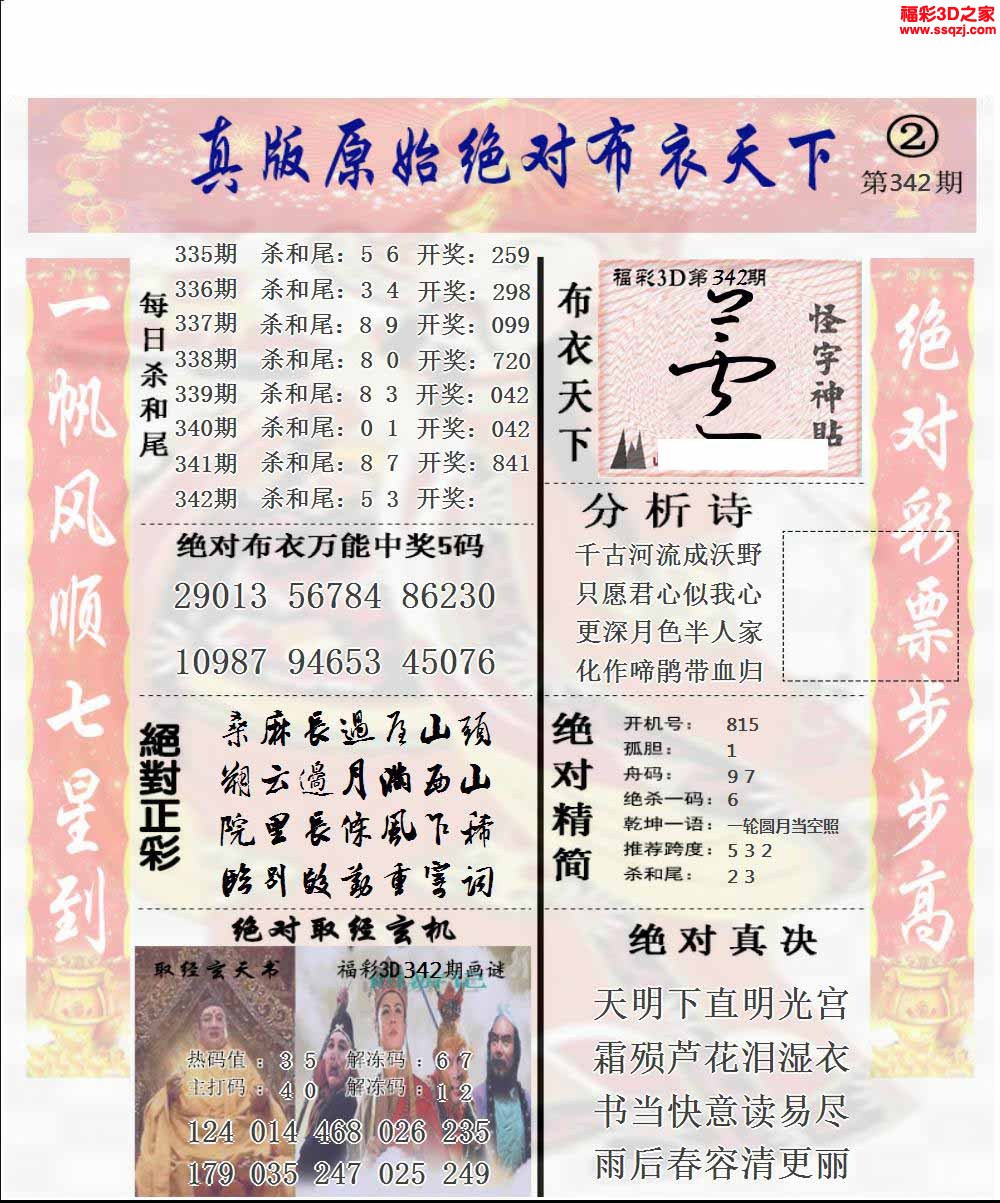 福彩3D之家
www.ssqzj.com
真版原始绝对布衣天下
②
第342期
一帆风顺七星到
每日杀和尾
335期 杀和尾：5 6 开奖：259
336期 杀和尾：3 4 开奖：298
337期 杀和尾：8 9 开奖：099
338期 杀和尾：8 0 开奖：720
339期 杀和尾：8 3 开奖：042
340期 杀和尾：0 1 开奖：042
341期 杀和尾：8 7 开奖：841
342期 杀和尾：5 3 开奖：
绝对布衣万能中奖5码
29013 56784 86230
10987 94653 45076
絕對正彩
桑麻長過屋山頭
朔云邊月滿西山
院里長條風乍稀
臨別殷勤重寄词
绝对取经玄机
取经玄天书
福彩3D342期画谜
热码值：3 5 解冻码：6 7
主打码：4 0 解冻码：1 2
124 014 468 026 235
179 035 247 025 249
布衣天下
福彩3D第342期
怪字神贴
分析诗
千古河流成沃野
只愿君心似我心
更深月色半人家
化作啼鹃带血归
绝对精简
开机号： 815
孤胆： 1
舟码： 9 7
绝杀一码：6
乾坤一语：一轮圆月当空照
推荐跨度：5 3 2
杀和尾： 2 3
绝对真决
天明下直明光宫
霜殒芦花泪湿衣
书当快意读易尽
雨后春容清更丽
绝对彩票步步高